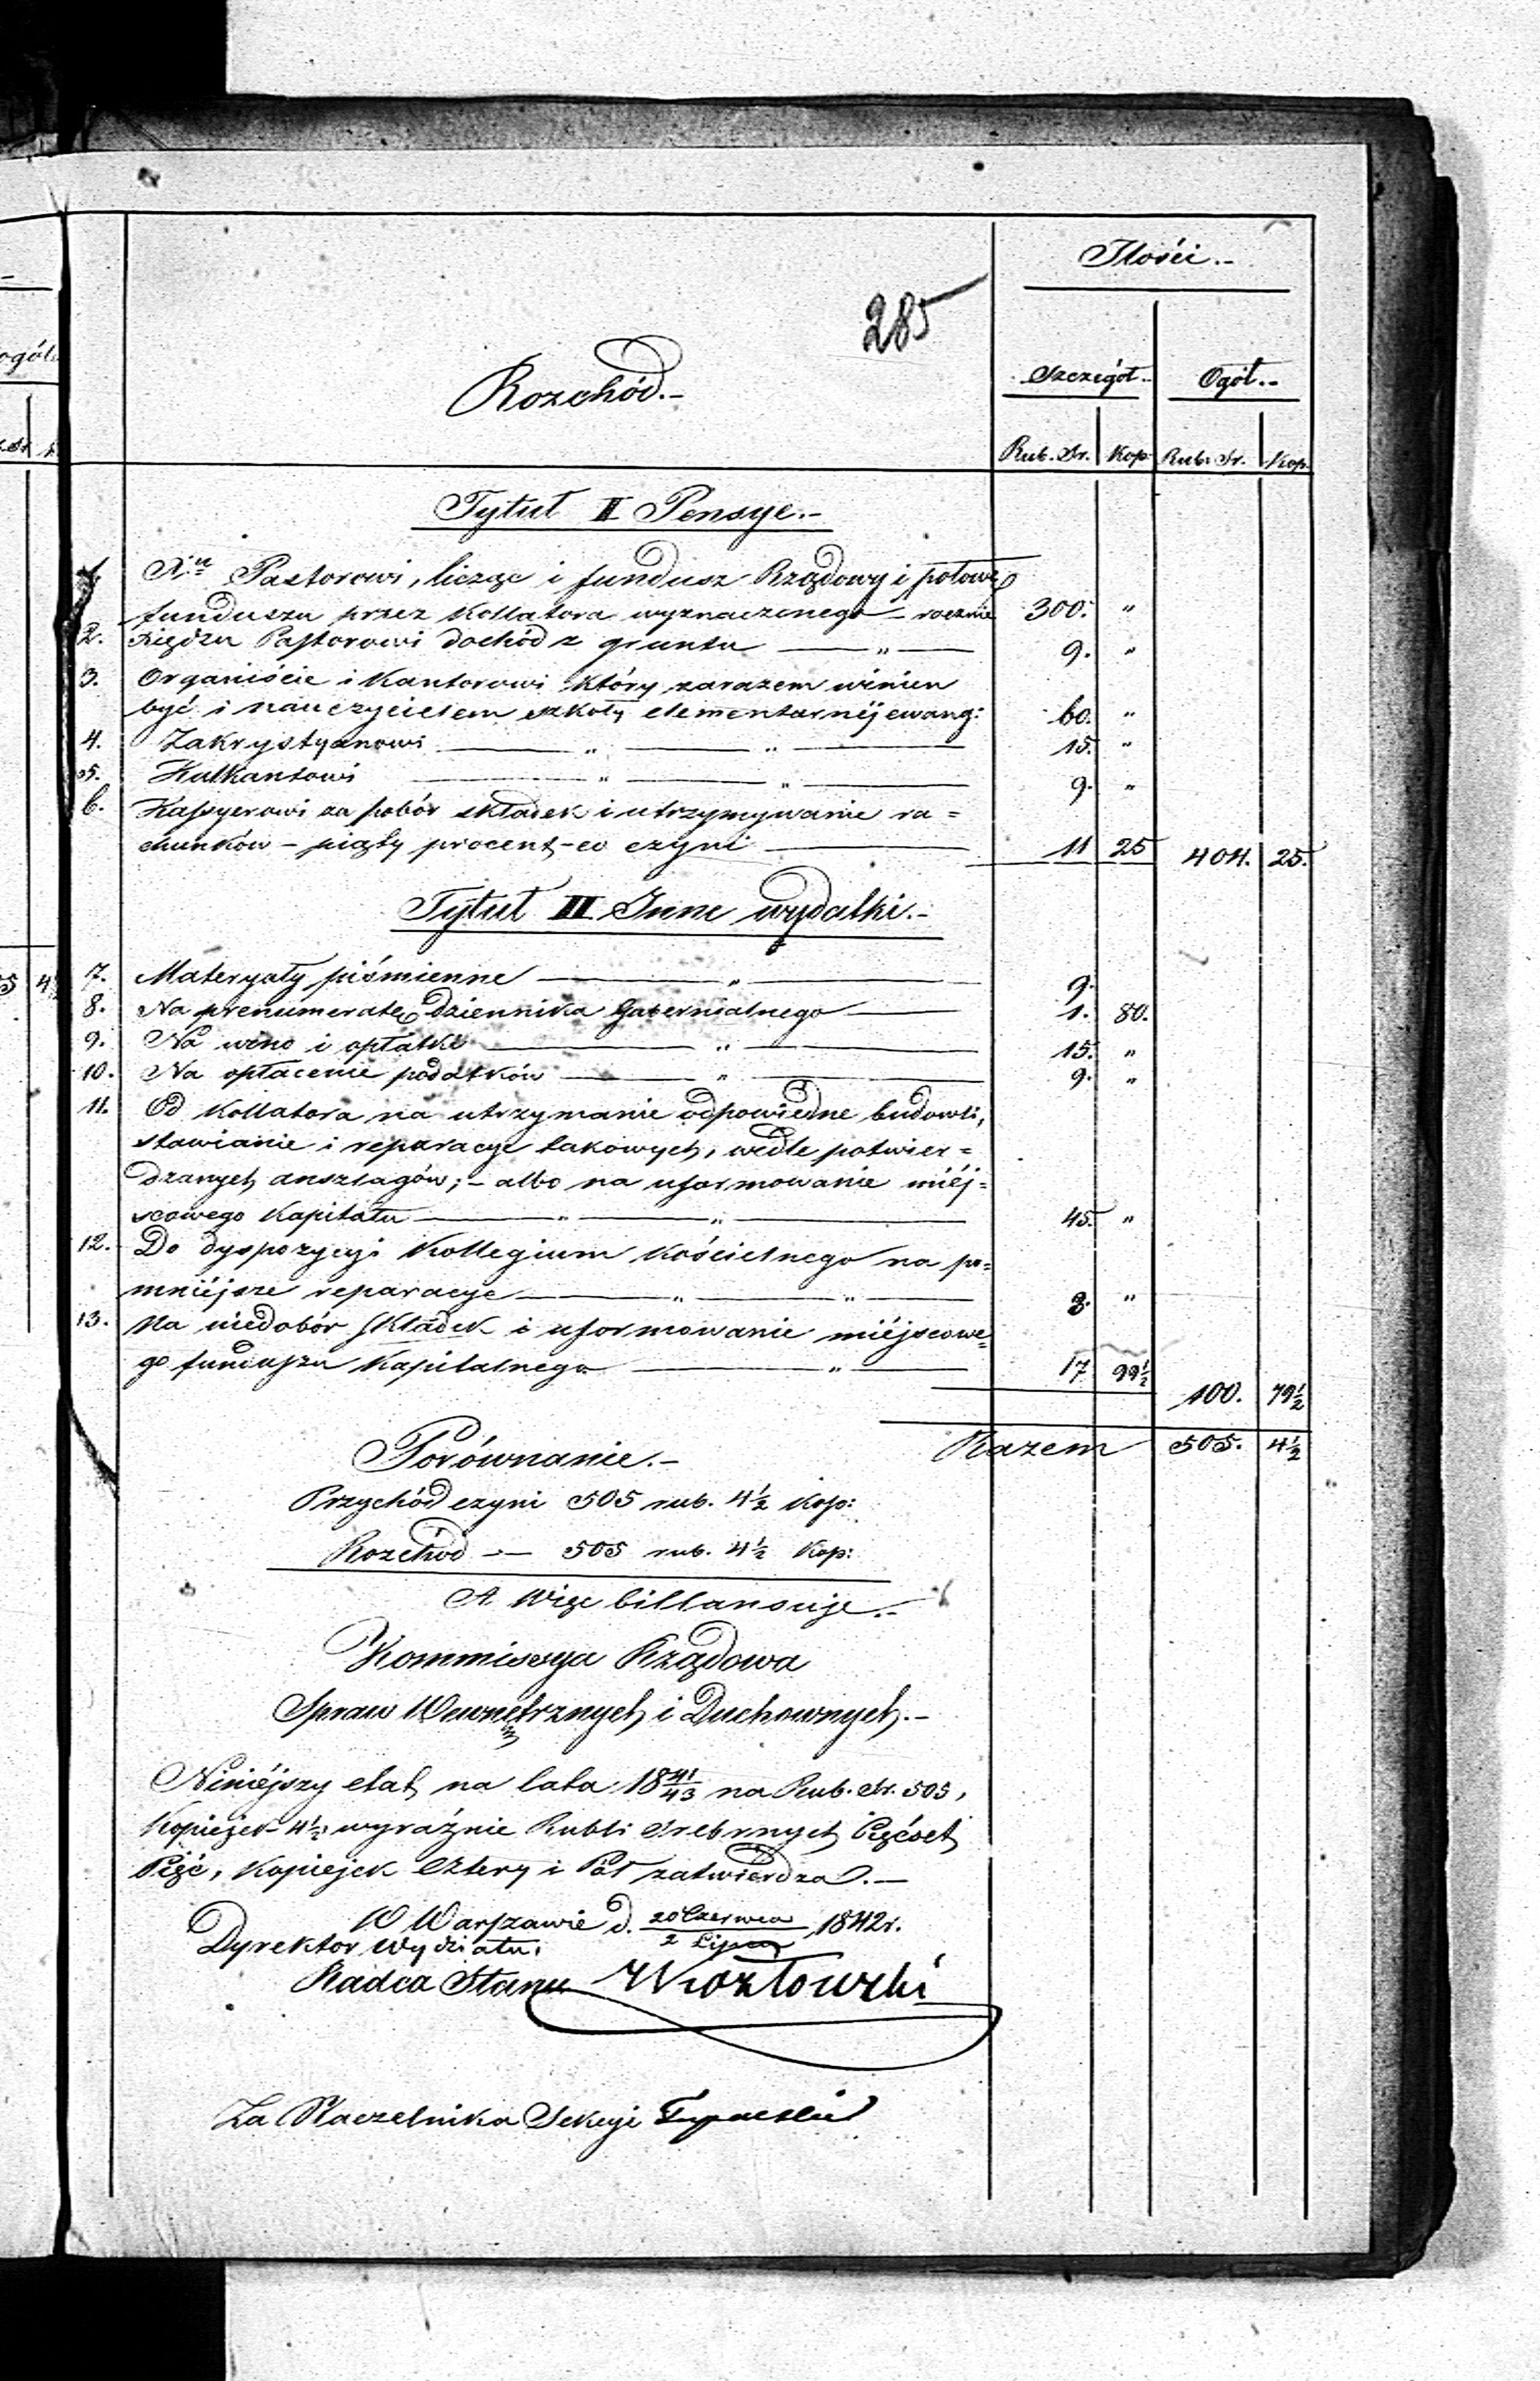 ogół
Ilości.-
285
Rozchód.-
Szczegół.- Ogół.-
Rub. Sr. Kop. Rub. Sr. Kop.
Tytuł II Pensye.-
1. Xu Pastorowi, licząc i fundusz Rządowy i połowę
funduszu przez Kollatora wyznaczonego - rocznie 300. "
2. Xiędzu Pastorowi dochód z gruntu — " — 9. "
3. Organiście i Kantorowi który zarazem winien
być i nauczycielem szkoły elementarnéj ewang: 60. "
4. Zakrystyanowi — " — " — 15. "
5. Kalkantowi — " — " — 9. "
6. Kassyerowi za pobór składek i utrzymywanie ra=
chunków - piąty procent - co czyni — 11 25 404. 25.
Tytuł III Inne wydatki.-
7. Materyały piśmienne — " — 9.
8. Na prenumeratę dziennika Gubernialnego — 1. 80.
9. Na wino i opłatki — " — 15. "
10. Na opłacenie podatków — " — 9. "
11. Od Kollatora na utrzymanie odpowiedne budowli,
stawianie i reparacye takowych, wedle potwier=
dzanych anszlagów; - albo na uformowanie miéj=
scowego Kapitału — " — " — 45. "
12. Do dyspozycyi Kollegium Kościelnego na po=
mniéjsze reparacye — " — " — 3. "
13. Na niedobór składek i uformowanie miéjscowe=
go funduszu Kapitalnego — " — 17 99½
100. 79½
Razem 505. 4½
Porównanie.-
Przychód czyni 505 rub. 4½ Kop:
Rozchód -"- 505 rub. 4½ Kop:
A więc billansuje.-
Kommissya Rządowa
Spraw Wewnętrznych i Duchownych.-
Niniéjszy etat na lata 18 41/43 na Rub. Sr. 505,
Kopiejek 4½ wyraźnie Rubli Srebrnych Pięćset
Pięć, Kopiejek Cztery i Pół zatwierdza.-
W Warszawie d. 20 Czerwca/2 Lipca 1842 r.
Dyrektor Wydziału,
Radca Stanu Kozłowski
Za Naczelnika Sekcyi